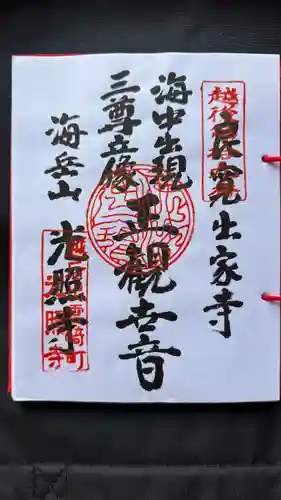 良寛出家寺
海中出現
三尊立像
正観世音
海岳山
光照寺